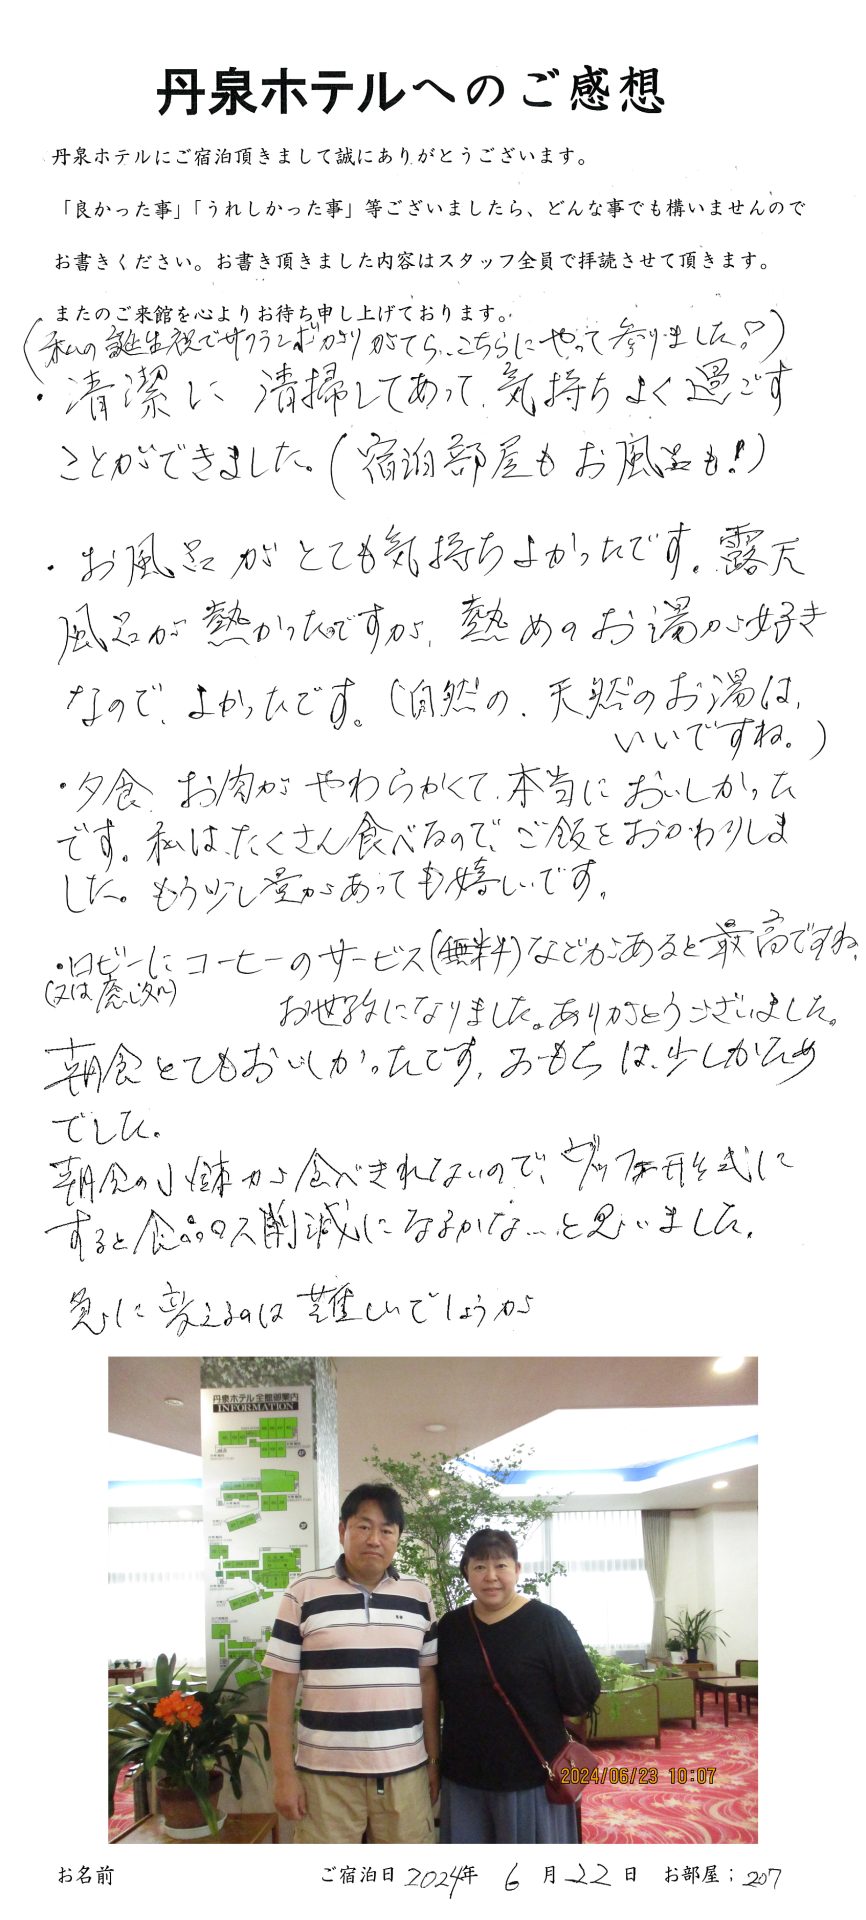 丹泉ホテルへのご感想
丹泉ホテルにご宿泊頂きまして誠にありがとうございます。
「良かった事」「うれしかった事」等ございましたら、どんな事でも構いませんので
お書きください。お書き頂きました内容はスタッフ全員で拝読させて頂きます。
またのご来館を心よりお待ち申し上げております。
(私の誕生祝でサクランボがりがてら、こちらにやって参りました♡)
・清潔に清掃してあって、気持ちよく過ごす
ことができました。(宿泊部屋もお風呂も!)
・お風呂がとても気持ちよかったです。露天
風呂が熱かったのですが、熱めのお湯が好き
なので、よかったです。(自然の、天然のお湯は、
いいですね。)
・夕食、お肉がやわらかくて、本当においしかった
です。私はたくさん食べるので、ご飯をおかわりしま
した。もう少し量があっても嬉しいです。
・ロビーにコーヒーのサービス(無料)などがあると最高ですね。
(又は、セルフ)
お世話になりました。ありがとうございました。
朝食とてもおいしかったです。おもちは、少しかため
でした。
朝食の小鉢が食べきれないので、ヴッフェ形式に
すると食品ロス削減になるかな…と思いました。
急に変えるのは難しいでしょうが
丹泉ホテル全館御案内
INFORMATION
2024/06/23 10:07
お名前 ご宿泊日 2024年 6月22日 お部屋; 207